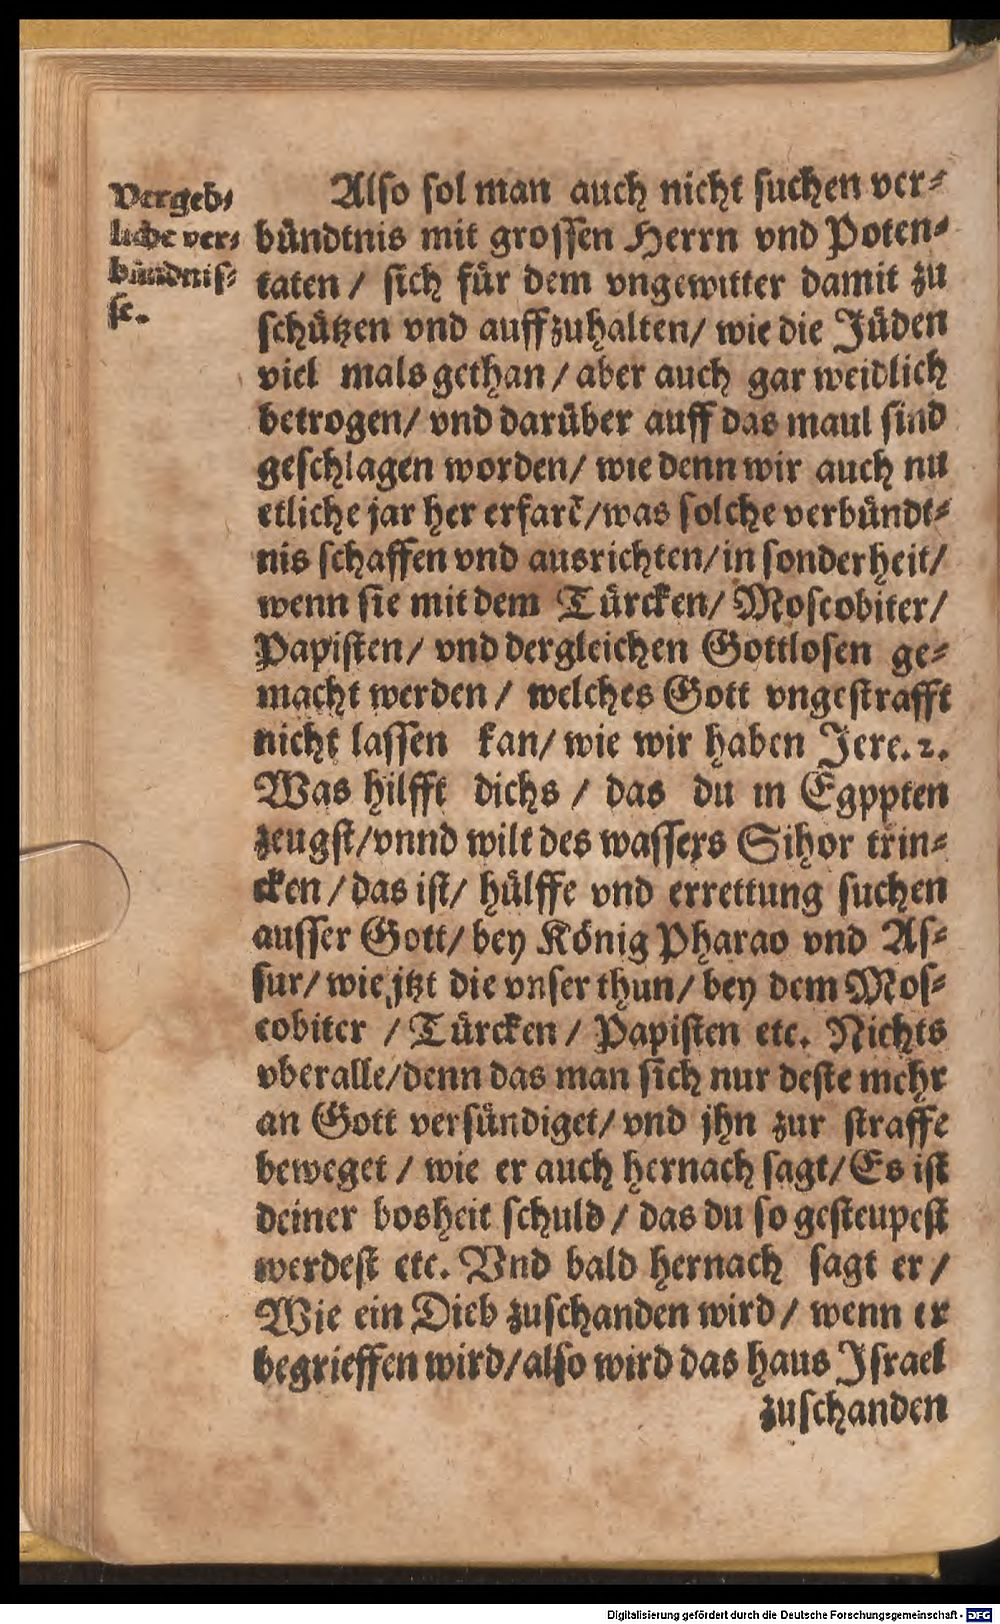 Vergeb⸗
liche ver⸗
bündnis⸗
se.
Also sol man auch nicht suchen ver⸗
bündtnis mit grossen Herrn vnd Poten⸗
taten / sich für dem vngewitter damit zu
schützen vnd auffzuhalten/ wie die Jüden
viel mals gethan / aber auch gar weidlich
betrogen/ vnd darüber auff das maul sind
geschlagen worden/ wie denn wir auch nu
etliche jar her erfarē/was solche verbündt⸗
nis schaffen vnd ausrichten/in sonderheit/
wenn sie mit dem Türcken/ Moscobiter/
Papisten/ vnd dergleichen Gottlosen ge⸗
macht werden / welches Gott vngestrafft
nicht lassen kan/ wie wir haben Jere. 2.
Was hilfft dichs / das du in Egppten
zeugst/vnnd wilt des wassers Sihor trin⸗
cken / das ist/ hülffe vnd errettung suchen
ausser Gott/ bey König Pharao vnd As⸗
sur/ wie jtzt die vnser thun/ bey dem Mos⸗
cobiter / Türcken / Papisten etc. Nichts
vberalle/denn das man sich nur deste mehr
an Gott versündiget/ vnd jhn zur straffe
beweget / wie er auch hernach sagt/ Es ist
deiner bosheit schuld / das du so gesteupest
werdest etc. Vnd bald hernach sagt er /
Wie ein Dieb zuschanden wird / wenn er
begrieffen wird/also wird das haus Israel
zuschanden
Digitalisierung gefördert durch die Deutsche Forschungsgemeinschaft - DFG